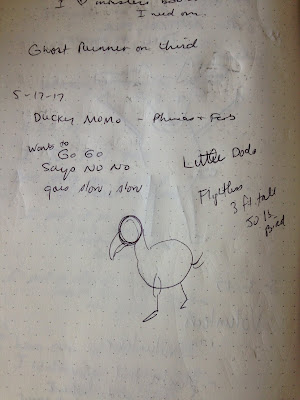 I need one
Ghost Runner on third
5-17-17
Ducky Momo - Phineas + Ferb
wants to
Go Go
Says No No
goes slow, slow
Little Dodo
Flightless
3 ft. tall
50 lb.
Bird